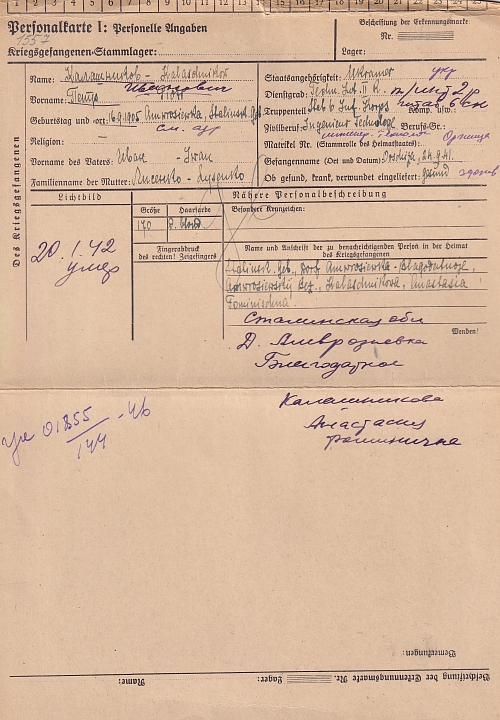 1 2 3 4 5 6 7 8 9 10 11 12 13 14 15 16 17 18 19 20 21 22 23 24 25
Personalkarte I: Personelle Angaben
Beschriftung der Erkennungsmarke
Nr.
1557
Kriegsgefangenen-Stammlager:
Lager:
Des Kriegsgefangenen
Name: Калашников - Kalaschnikow
Иванович
Vorname: Петр
Geburtstag und -ort: 16.9.1905 Amwrosiewka, Stalinsk. Geb.
Religion:
Vorname des Vaters: Иван - Iwan
Familienname der Mutter: Лисенко - Lysenko
Staatsangehörigkeit: Ukrainer укр
Dienstgrad: Techn. Int. II R. т/инт 2 р
Truppenteil: Stab 6 Inf. Korps Komp. usw.: штаб 6 ск
Zivilberuf: Ingenieur Technologe Berufs-Gr.:
инженер-технолог
Matrikel Nr. (Stammrolle des Heimatstaates):
Gefangenname (Ort und Datum): 24.9.41.
Ob gesund, krank, verwundet eingeliefert: gesund здоров
Lichtbild
Nähere Personalbeschreibung
Größe
Haarfarbe
Besondere Kennzeichen:
170
d. blond
Fingerabdruck
des rechten! Zeigefingers
Name und Anschrift der zu benachrichtigenden Person in der Heimat
des Kriegsgefangenen
20.1.42
умер
Stalinsk. Geb., Dorf Amwrosiewka-Blagodatnoje,
Amwrosiewskij Bez., Kalaschnikowa, Anastasia
Fominischna.
Сталинская обл
Wenden!
Д. Амврозиевка
Благодатное
Калашникова
Анастасия
Фоминична
01855
144
-46
Bemerkungen:
Beschriftung der Erkennungsmarke Nr.
Lager:
Name: